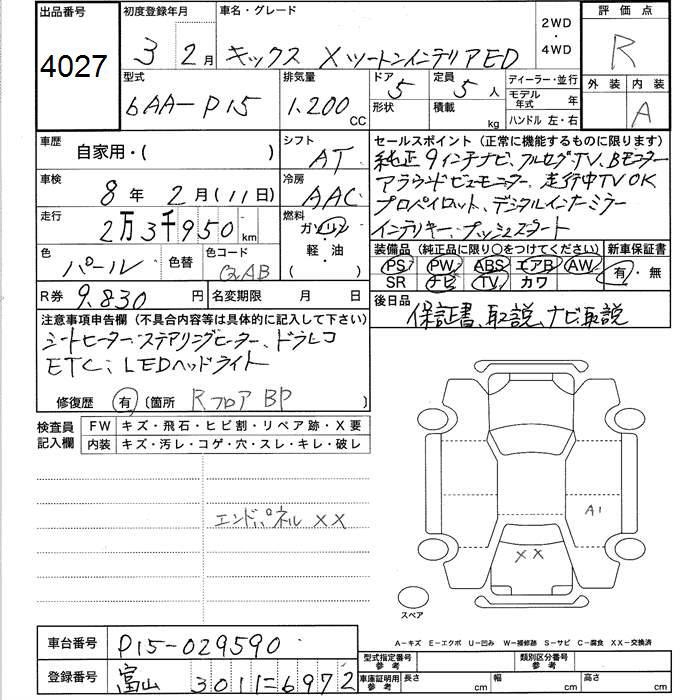 出品番号 初度登録年月 車名・グレード 2WD・4WD 評価点
4027 3 2月 キックス XツートンインテリアED R
型式 排気量 ドア 5 定員 5人 ディーラー・並行 外装 内装
6AA-P15 1.200 CC 形状 積載 kg モデル年式 年 A
ハンドル 左・右
車歴 自家用・( ) シフト AT セールスポイント (正常に機能するものに限ります)
純正9インチナビ、フルセグTV、Bモニター
車検 8年 2月(11日) 冷房 AAC アラウンドビューモニター、走行中TVOK
走行 2万3千950km 燃料 ガソリン プロパイロット、デジタルインナーミラー
軽・油 ( ) インテリキー・プッシュスタート
色 パール 色替 色コード 装備品 (純正品に限り○をつけてください) 新車保証書
PS PW ABS エアB AW 有・無
SR ナビ TV カワ
R券 9.830円 名変期限 月 日 後日品
保証書、取説、ナビ取説
注意事項申告欄 (不具合内容等は具体的に記入して下さい)
シートヒーター・ステアリングヒーター、ドラレコ
ETC、LEDヘッドライト
修復歴 有 〔箇所 RフロアBP 〕
検査員記入欄 FW キズ・飛石・ヒビ割・リペア跡・X要
内装 キズ・汚レ・コゲ・穴・スレ・キレ・破レ
エンドパネル XX
A1
XX
スペア
A-キズ E-エクボ U-凹み W-補修跡 S-サビ C-腐食 XX-交換済
車台番号 P15-029590 型式指定番号 参考 類別区分番号 参考
登録番号 富山 301 6972 車庫証明用参考 長さ cm 幅 cm 高さ cm